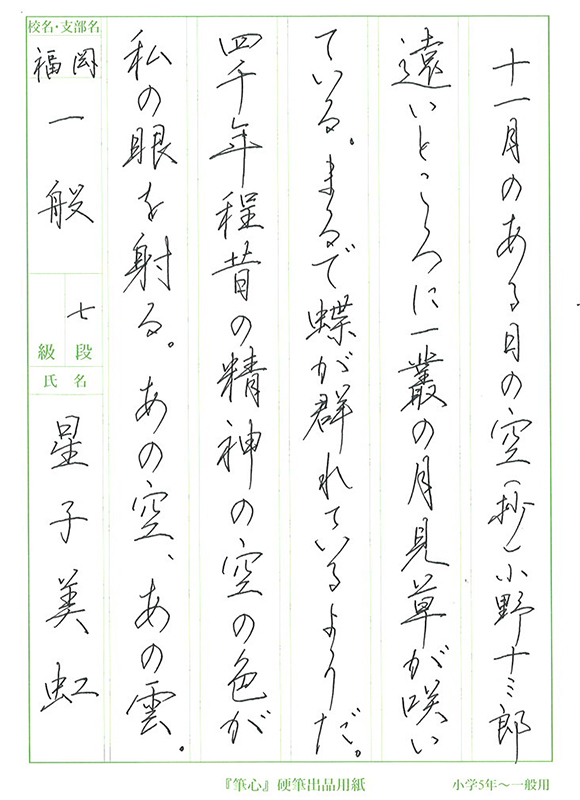 十一月のある日の空(抄)小野十三郎
遠いところに一叢の月見草が咲い
ている。まるで蝶が群れているようだ。
四千年程昔の精神の空の色が
私の眼を射る。あの空、あの雲。
校名・支部名
福岡
一般
七段
級
氏名
星子美虹
『筆心』硬筆出品用紙
小学5年～一般用